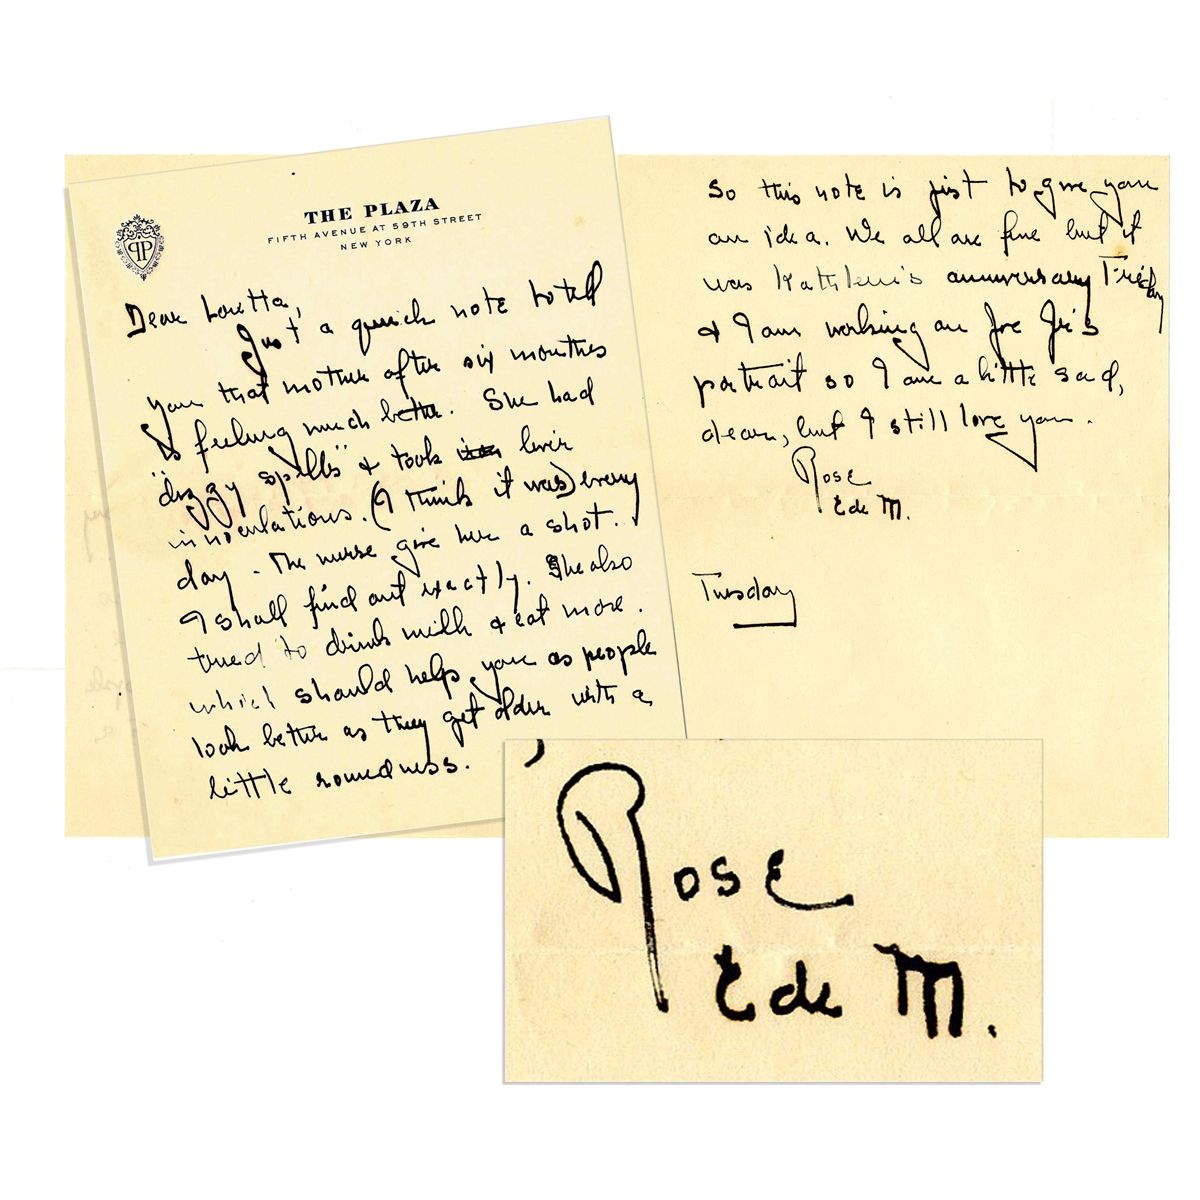 THE PLAZA
FIFTH AVENUE AT 59TH STREET
NEW YORK
PP
Dear Loretta,
Just a quick note to tell
you that mother after six months
is feeling much better. She had
"dizzy spells" & took liver
innoculations. (I think it was) every
day - The nurse give her a shot.
I shall find out exactly. She also
tried to drink milk & eat more.
which should help you as people
look better as they get older with a
little roundness.
So this note is just to give you
an idea. We all are fine but it
was Kathleen's anniversary Friday
& I am working on Joe Jr's
portrait so I am a little sad,
dear, but I still love you.
Rose
E de M.
Tuesday
Rose
E de M.